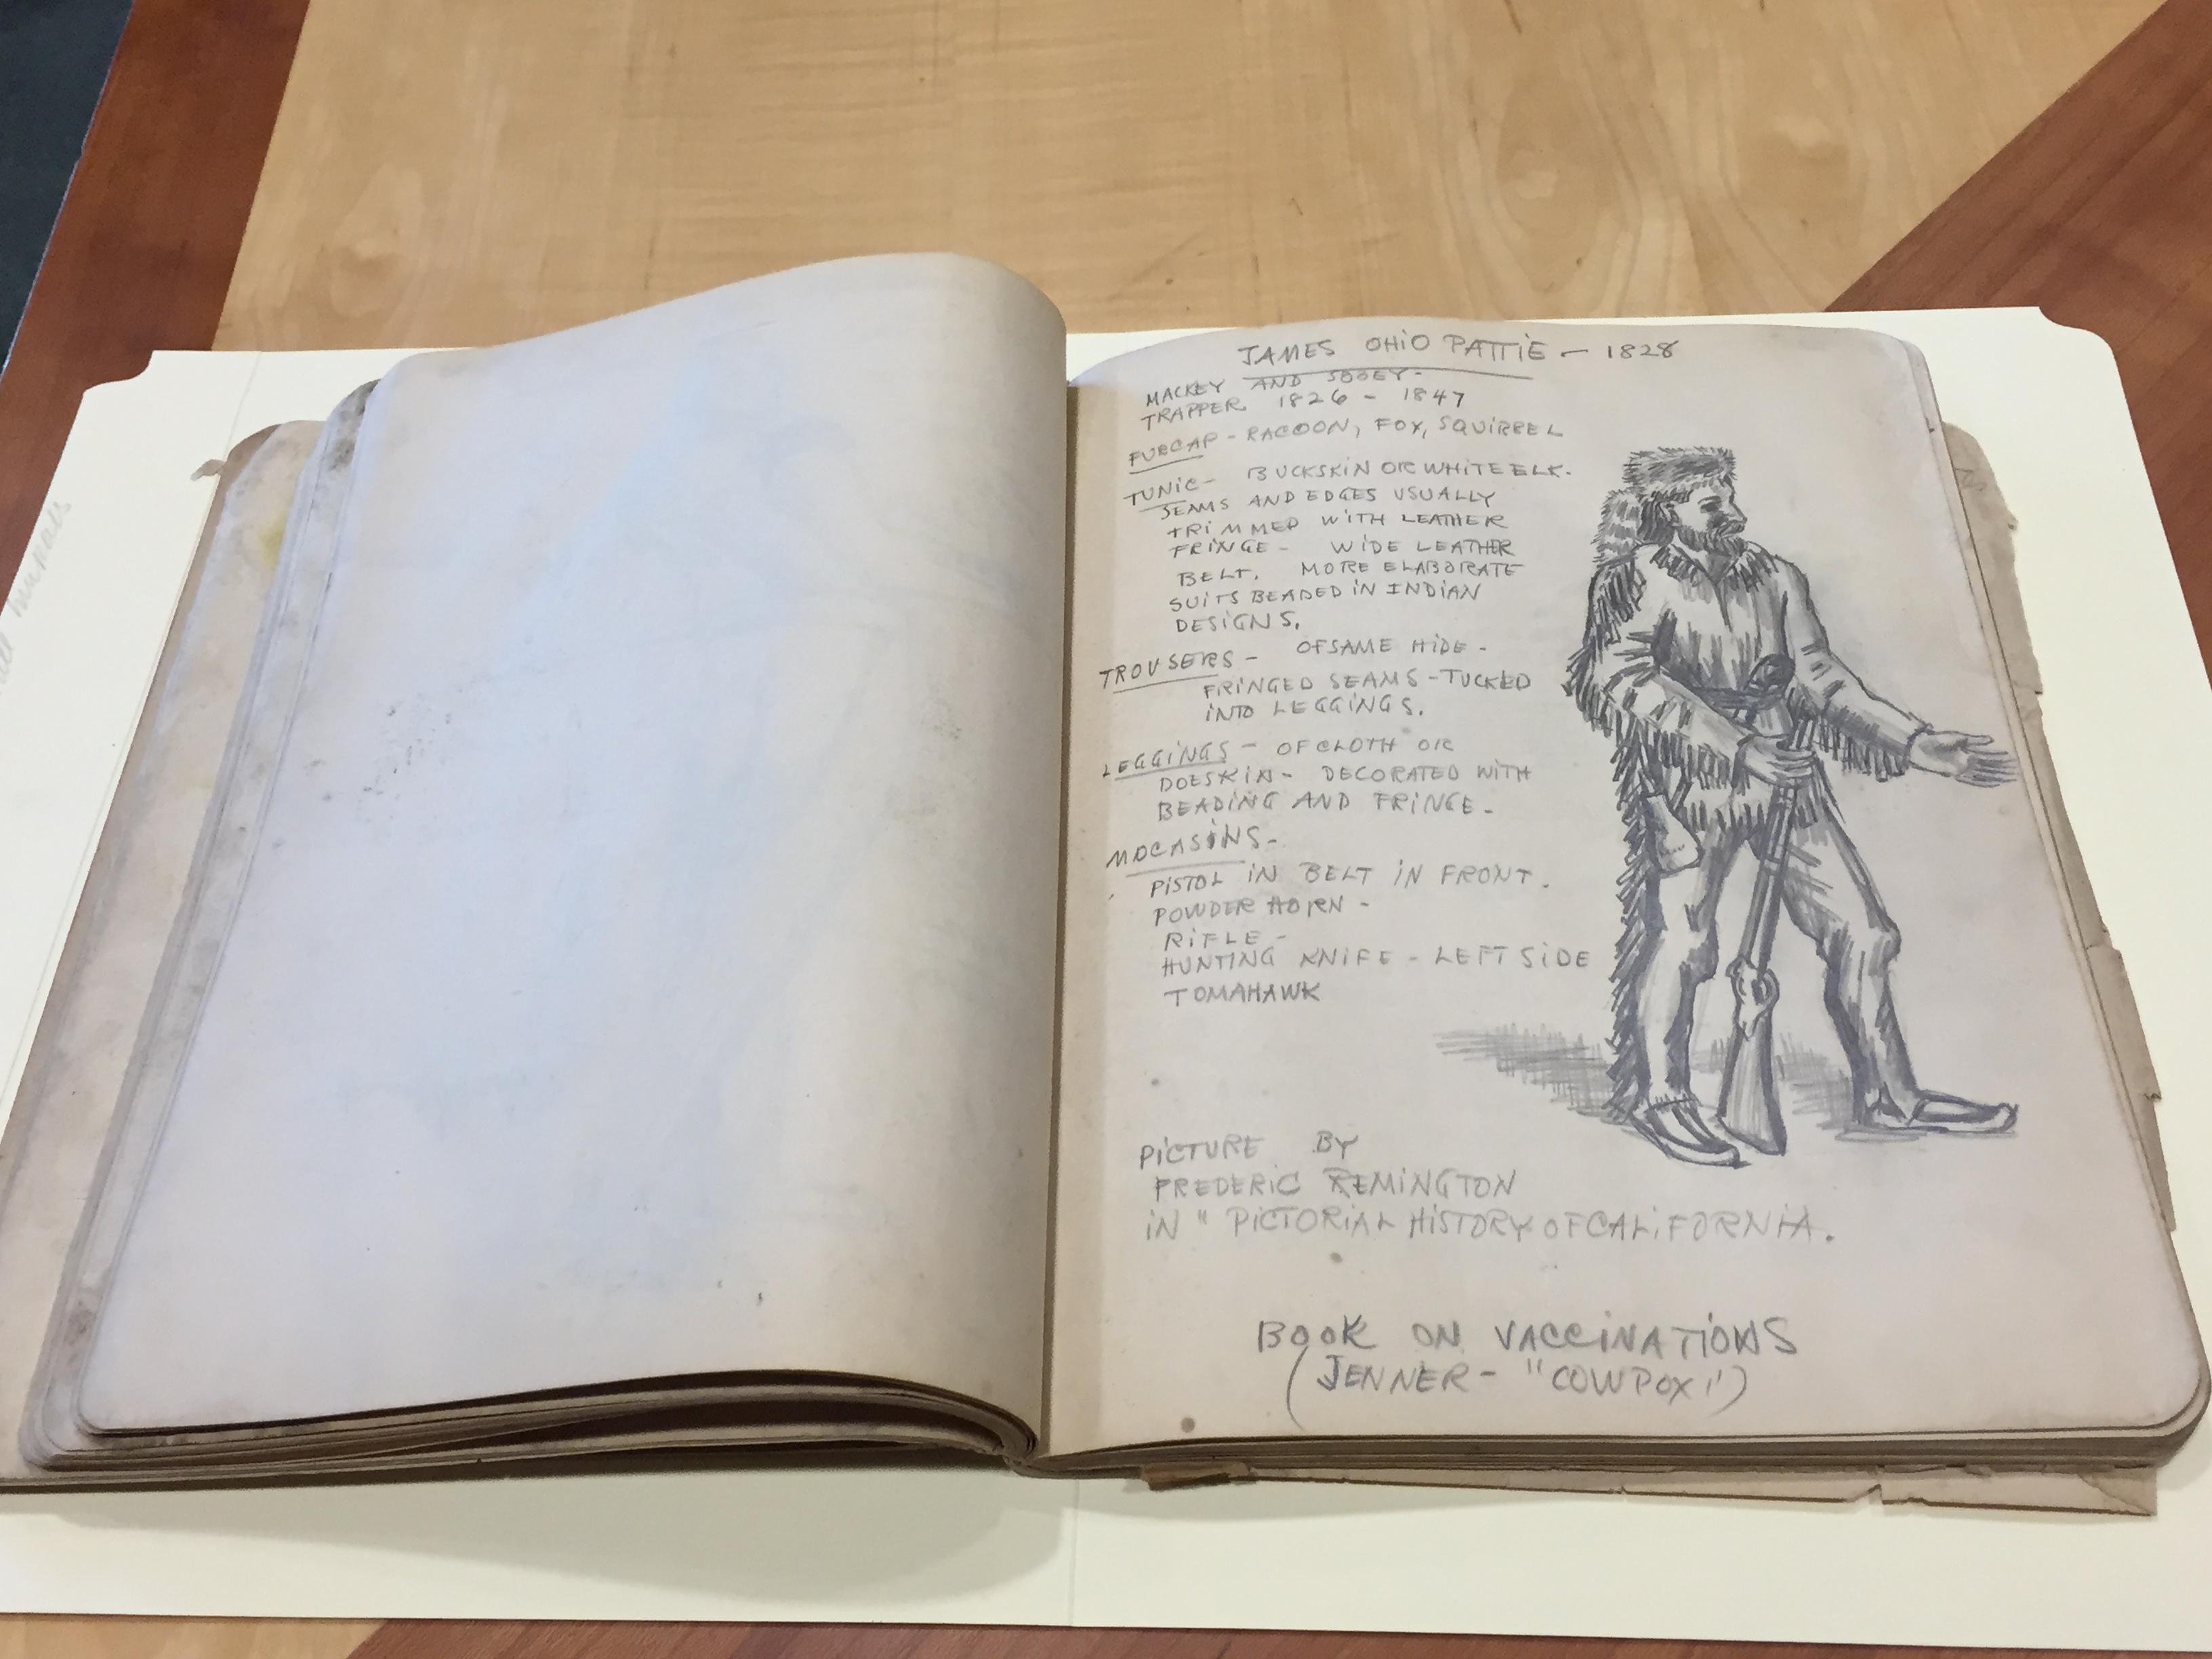 JAMES OHIO PATTIE - 1828
MACKEY AND SOOEY-
TRAPPER 1826 - 1847
FURCAP - RACOON, FOX, SQUIRREL
TUNIC- BUCKSKIN OR WHITE ELK.
SEAMS AND EDGES USUALLY
TRIMMED WITH LEATHER
FRINGE- WIDE LEATHER
BELT. MORE ELABORATE
SUITS BEADED IN INDIAN
DESIGNS.
TROUSERS - OF SAME HIDE -
FRINGED SEAMS - TUCKED
INTO LEGGINGS.
LEGGINGS - OF CLOTH OR
DOESKIN- DECORATED WITH
BEADING AND FRINGE-
MOCASINS-
PISTOL IN BELT IN FRONT.
POWDER HORN -
RIFLE -
HUNTING KNIFE - LEFT SIDE
TOMAHAWK
PICTURE BY
FREDERIC REMINGTON
IN " PICTORIAL HISTORY OF CALIFORNIA.
BOOK ON VACCINATIONS
(JENNER - "COWPOX")
murals